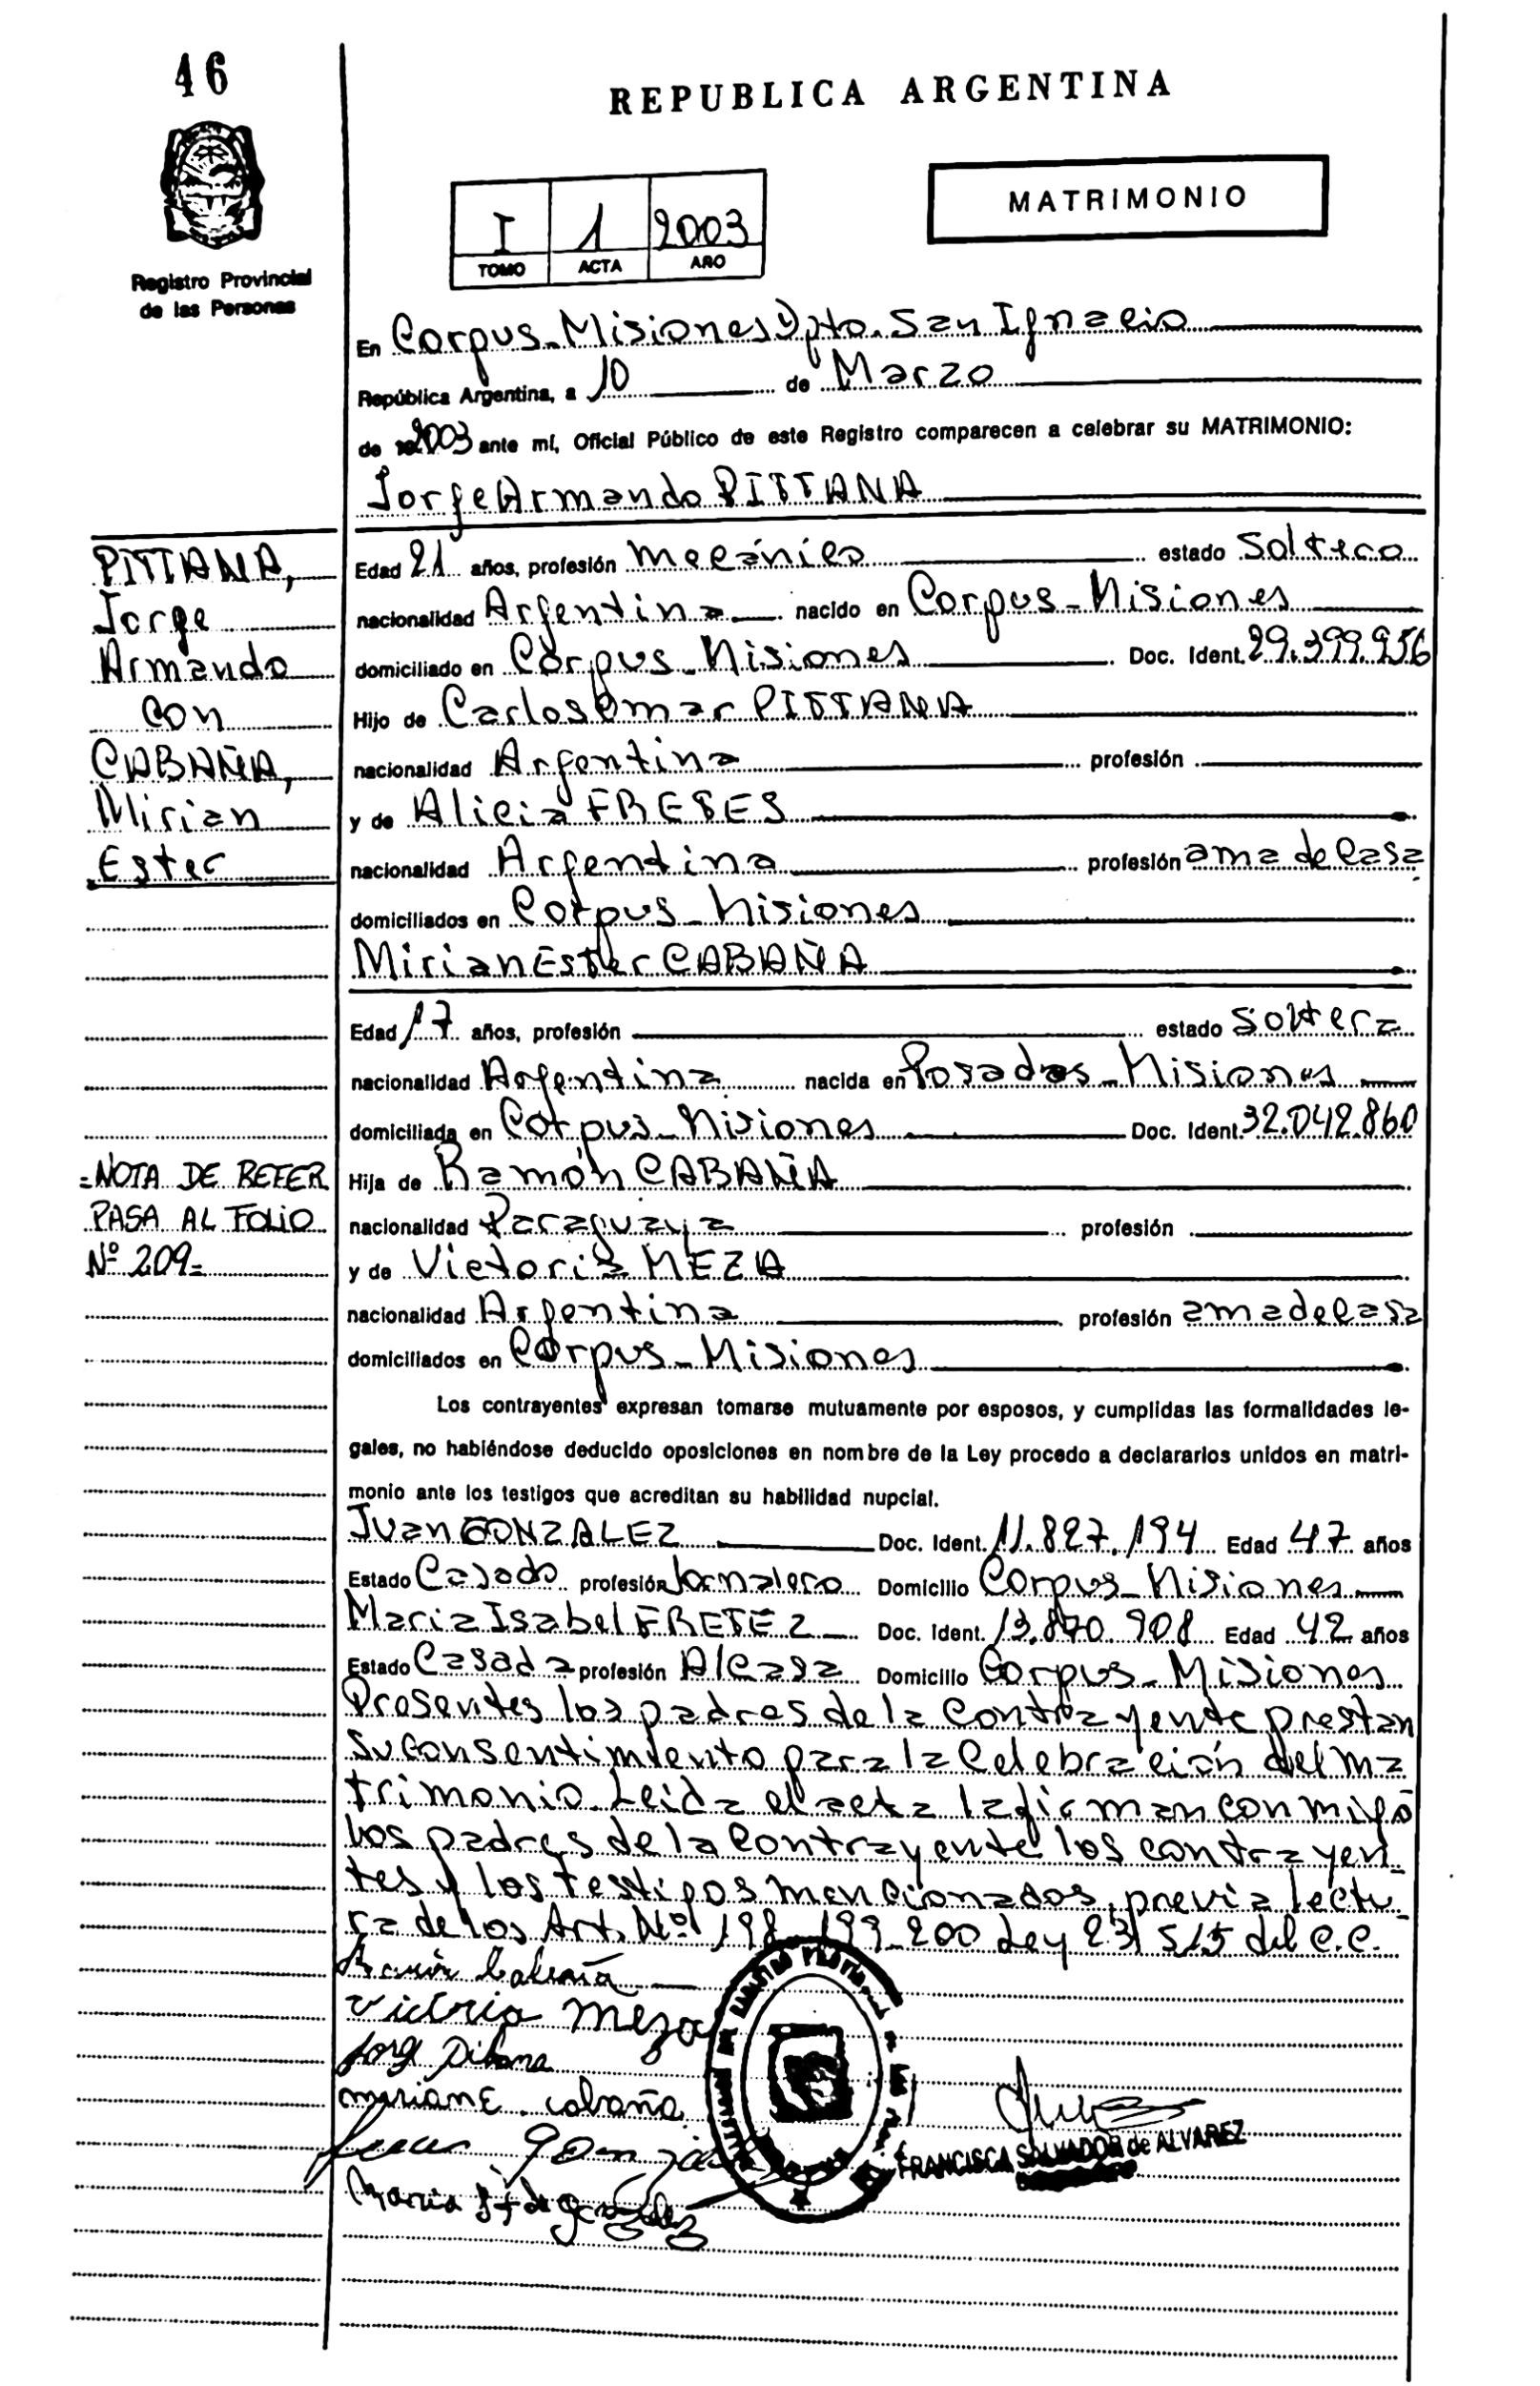 46
REPUBLICA ARGENTINA
MATRIMONIO
I 1 2003
TOMO ACTA AÑO
Registro Provincial
de las Personas
En Corpus - Misiones Dpto. San Ignacio
República Argentina, a 10 de Marzo
de 2003 ante mí, Oficial Público de este Registro comparecen a celebrar su MATRIMONIO:
Jorge Armando PITTANA
PITTANA,
Jorge
Armando
con
CABAÑA,
Mirian
Ester
Edad 21 años, profesión mecánico estado Soltero
nacionalidad Argentina nacido en Corpus - Misiones
domiciliado en Corpus - Misiones Doc. Ident. 29.399.956
Hijo de Carlos Omar PITTANA
nacionalidad Argentina profesión
y de Alicia FRETES
nacionalidad Argentina profesión ama de casa
domiciliados en Corpus - Misiones
Mirian Ester CABAÑA
Edad 17 años, profesión estado Soltera
nacionalidad Argentina nacida en Posadas - Misiones
domiciliada en Corpus - Misiones Doc. Ident. 32.042.860
= NOTA DE REFER
PASA AL FOLIO
Nº 209 =
Hija de Ramón CABAÑA
nacionalidad Paraguaya profesión
y de Victoria MEZA
nacionalidad Argentina profesión ama de casa
domiciliados en Corpus - Misiones
Los contrayentes expresan tomarse mutuamente por esposos, y cumplidas las formalidades le-
gales, no habiéndose deducido oposiciones en nombre de la Ley procedo a declararlos unidos en matri-
monio ante los testigos que acreditan su habilidad nupcial.
Juan GONZALEZ Doc. Ident. 11.827.194 Edad 47 años
Estado Casado profesión Jornalero Domicilio Corpus - Misiones
Maria Isabel FRETEZ Doc. Ident. 13.870.908 Edad 42 años
Estado Casada profesión A/casa Domicilio Corpus - Misiones
Presentes los padres de la contrayente prestan
su consentimiento para la celebración del ma
trimonio. Leida el acta la firman conmigo
los padres de la contrayente los contrayen
tes y los testigos mencionados, previa lectu
ra de los Art. Nº 198 - 199 - 200 Ley 23 515 del C.C.
Ramón Cabaña
Victoria Meza
Jorg Pitana
Mirian E. Cabaña
Juan Gonzalez
Maria F de Gonzalez
FRANCISCA SALVADOR de ALVAREZ